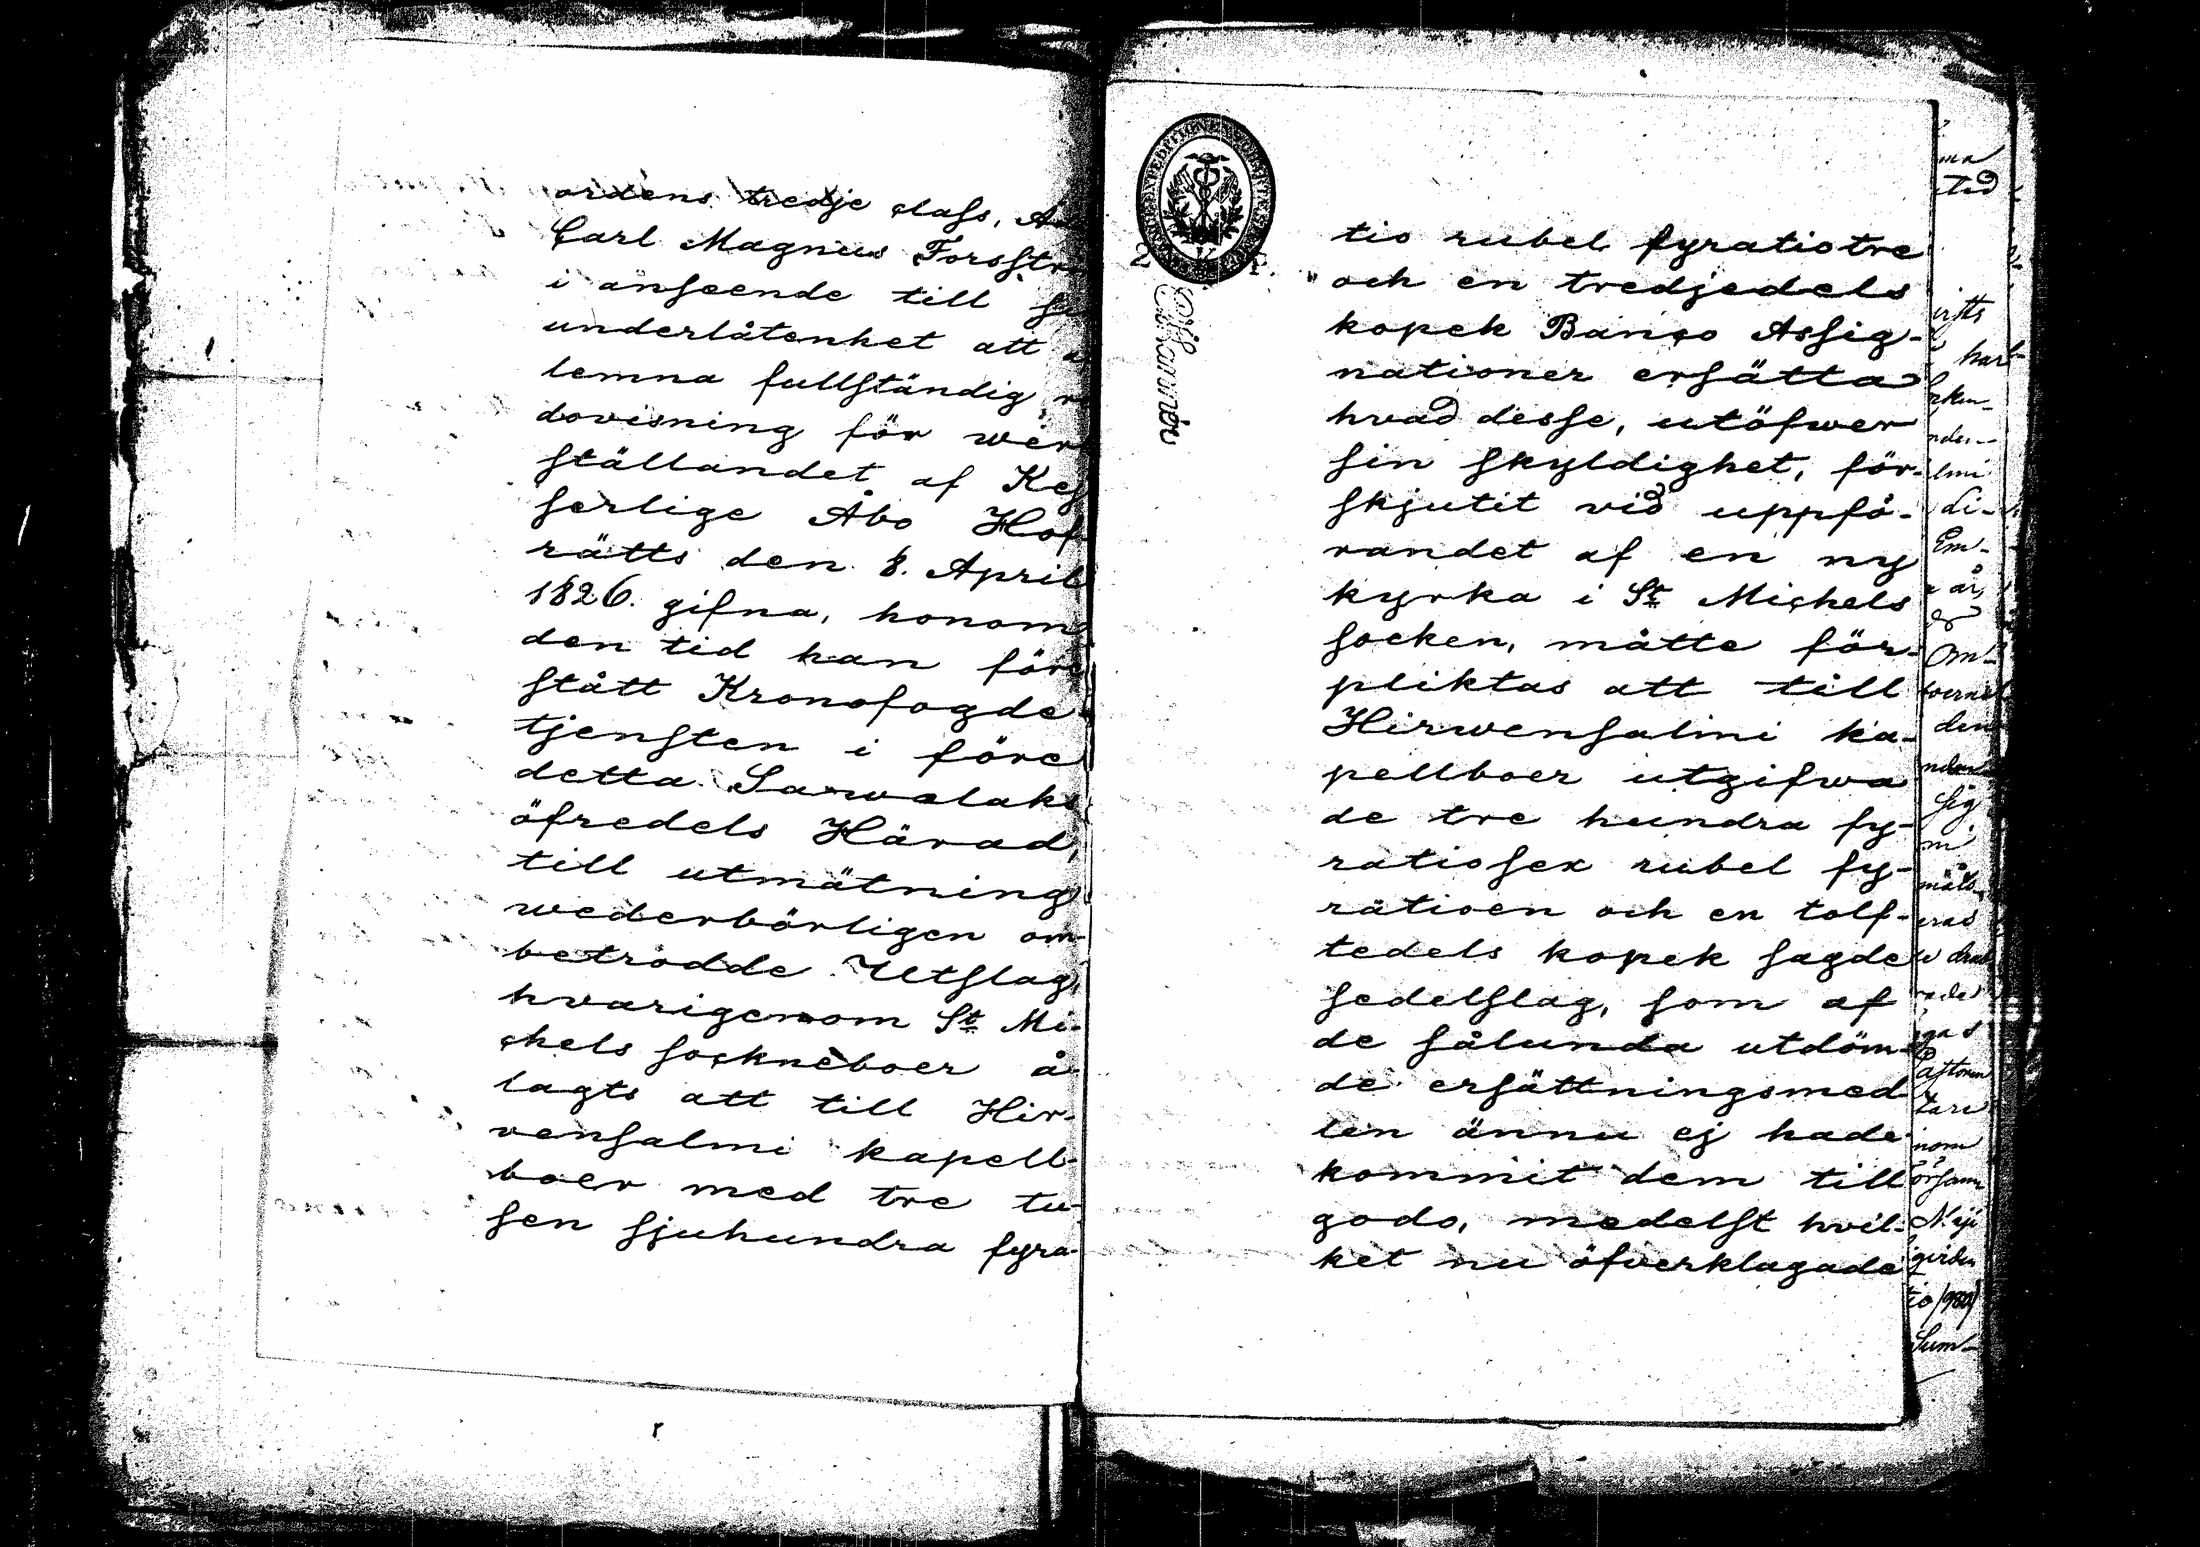 ordens tredje class, A
Carl Magnus Forsstr
i anseende till s
underlåtenhet att a
lemna fullständig r
dovisning för wer
ställandet af Kej
serlige Åbo Hof
rätts den 8. April
1826. gifna, honom
den tid han före
stått Kronofogde
tjensten i före
detta Sawolaks
öfredels Härad,
till utmätning
wederbörligen om
betrodde Utslag,
hvarigenom St Mi-
chels sockneboer å-
lagts att till Hir-
vensalmi kapell-
boer med tre tu-
sen sjuhundra fyra-
tio rubel fyratiotre
och en tredjedels
kopek Banco Assig-
nationer ersätta
hvad desse, utöfwer
sin skyldighet, för-
skjutit vid uppfö-
randet af en ny
kyrka i St Michels
socken, måtte för-
pliktas att till
Hirwensalmi ka-
pellboer utgifwa
de tre hundra fy-
ratiosex rubel fy-
ratioen och en tolf-
tedels kopek sagde
sedelslag, som af
de sålunda utdöm-
de ersättningsmed-
len ännu ej hade
kommit dem till
godo, medelst hvil-
ket nu öfverklagade